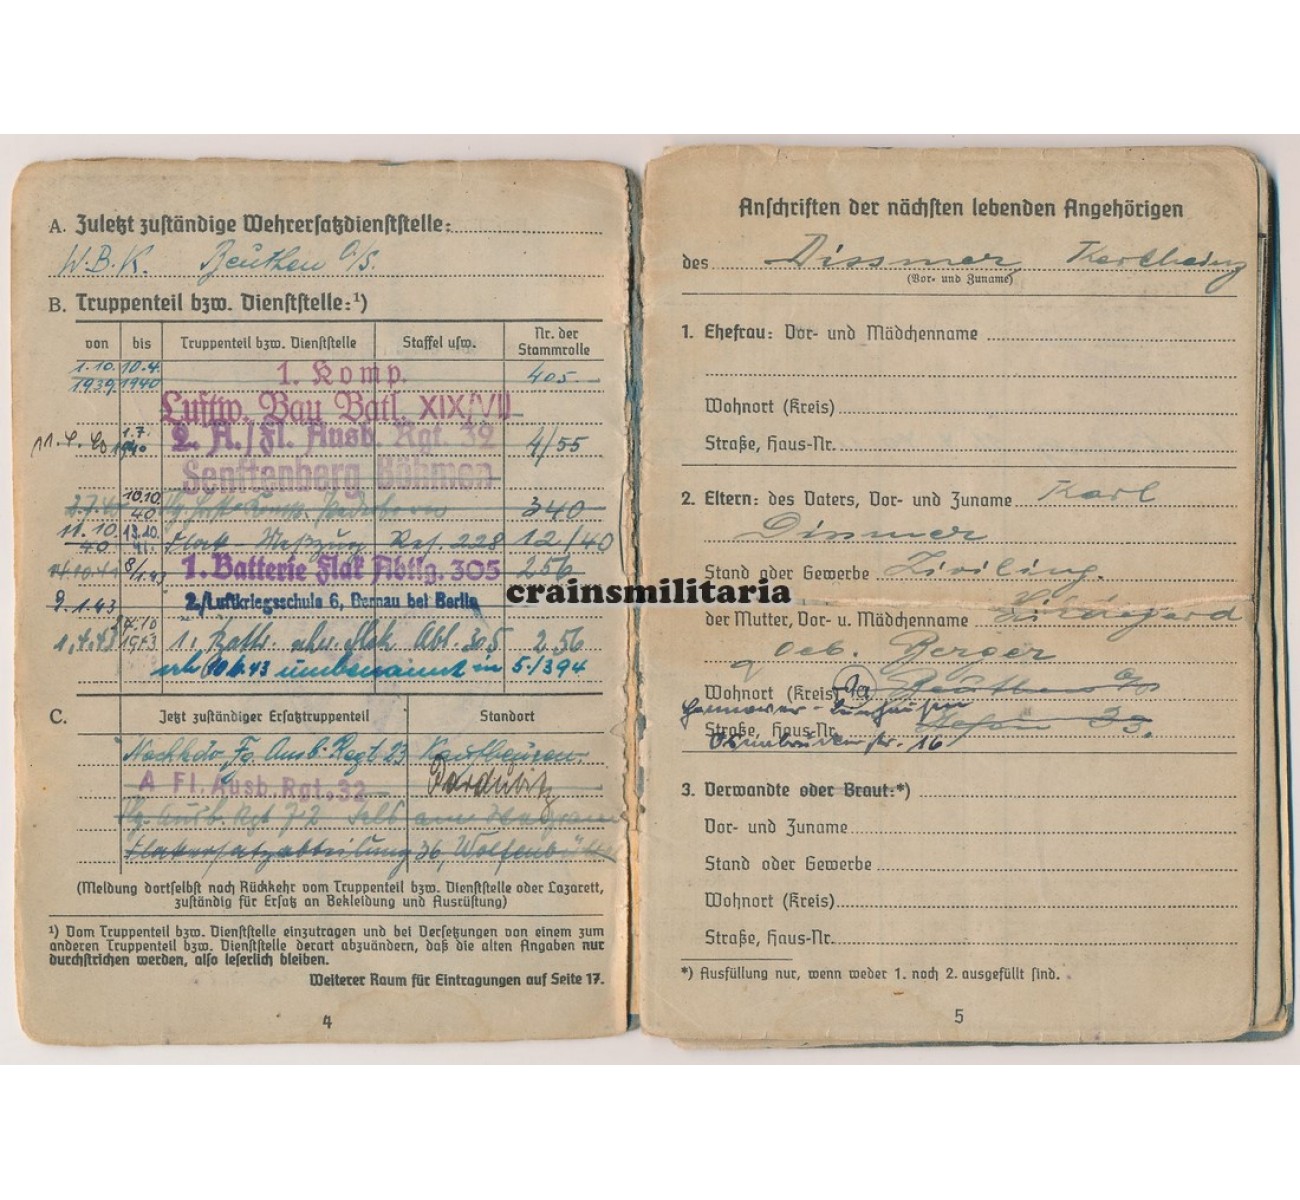 A. Zuletzt zuständige Wehrersatzdienststelle:
W.B.K. Beuthen O/S.
B. Truppenteil bzw. Dienststelle:¹)
von bis Truppenteil bzw. Dienststelle Staffel usw. Nr. der Stammrolle
1.10. 1939 10.4. 1940 1. Komp. 405
Luftw. Bau Batl. XIX/VII
1.7. 1940 2. A./Fl. Ausb. Rgt. 32 4/55
Senftenberg Böhmen
10.10. 40 340
11.10. 40 13.10. 41. Flak-Meßzug Res. 228 12/40
14.10.41 8/1.43 1. Batterie Flak Abtlg. 305 256
9.1.43 2./Luftkriegsschule 6, Bernau bei Berlin
1.4.43 1943 1. Battr. Flak Abt. 305 256
umbenannt in 5./394
C. Jetzt zuständiger Ersatztruppenteil Standort
Nachkdo. Fg. Ausb. Regt. 23 Kaufbeuren
A Fl. Ausb. Rgt. 32 Pardubitz
Ausb. Rgt
Flakersatzabteilung 36, Wolfenbüttel
(Meldung dortselbst nach Rückkehr vom Truppenteil bzw. Dienststelle oder Lazarett,
zuständig für Ersatz an Bekleidung und Ausrüstung)
¹) Vom Truppenteil bzw. Dienststelle einzutragen und bei Versetzungen von einem zum
anderen Truppenteil bzw. Dienststelle derart abzuändern, daß die alten Angaben nur
durchstrichen werden, also leserlich bleiben.
Weiterer Raum für Eintragungen auf Seite 17.
4
Anschriften der nächsten lebenden Angehörigen
des Dissmer, Karlheinz
(Vor- und Zuname)
1. Ehefrau: Vor- und Mädchenname
Wohnort (Kreis)
Straße, Haus-Nr.
2. Eltern: des Vaters, Vor- und Zuname Karl
Dissmer
Stand oder Gewerbe Ziviling.
der Mutter, Vor- u. Mädchenname Hildegard
geb. Berger
Wohnort (Kreis) Beuthen O/S
Hannover-
Straße, Haus-Nr. 23.
Osnabrückerstr. 16
3. Verwandte oder Braut:*)
Vor- und Zuname
Stand oder Gewerbe
Wohnort (Kreis)
Straße, Haus-Nr.
*) Ausfüllung nur, wenn weder 1. noch 2. ausgefüllt sind.
5
crainsmilitaria